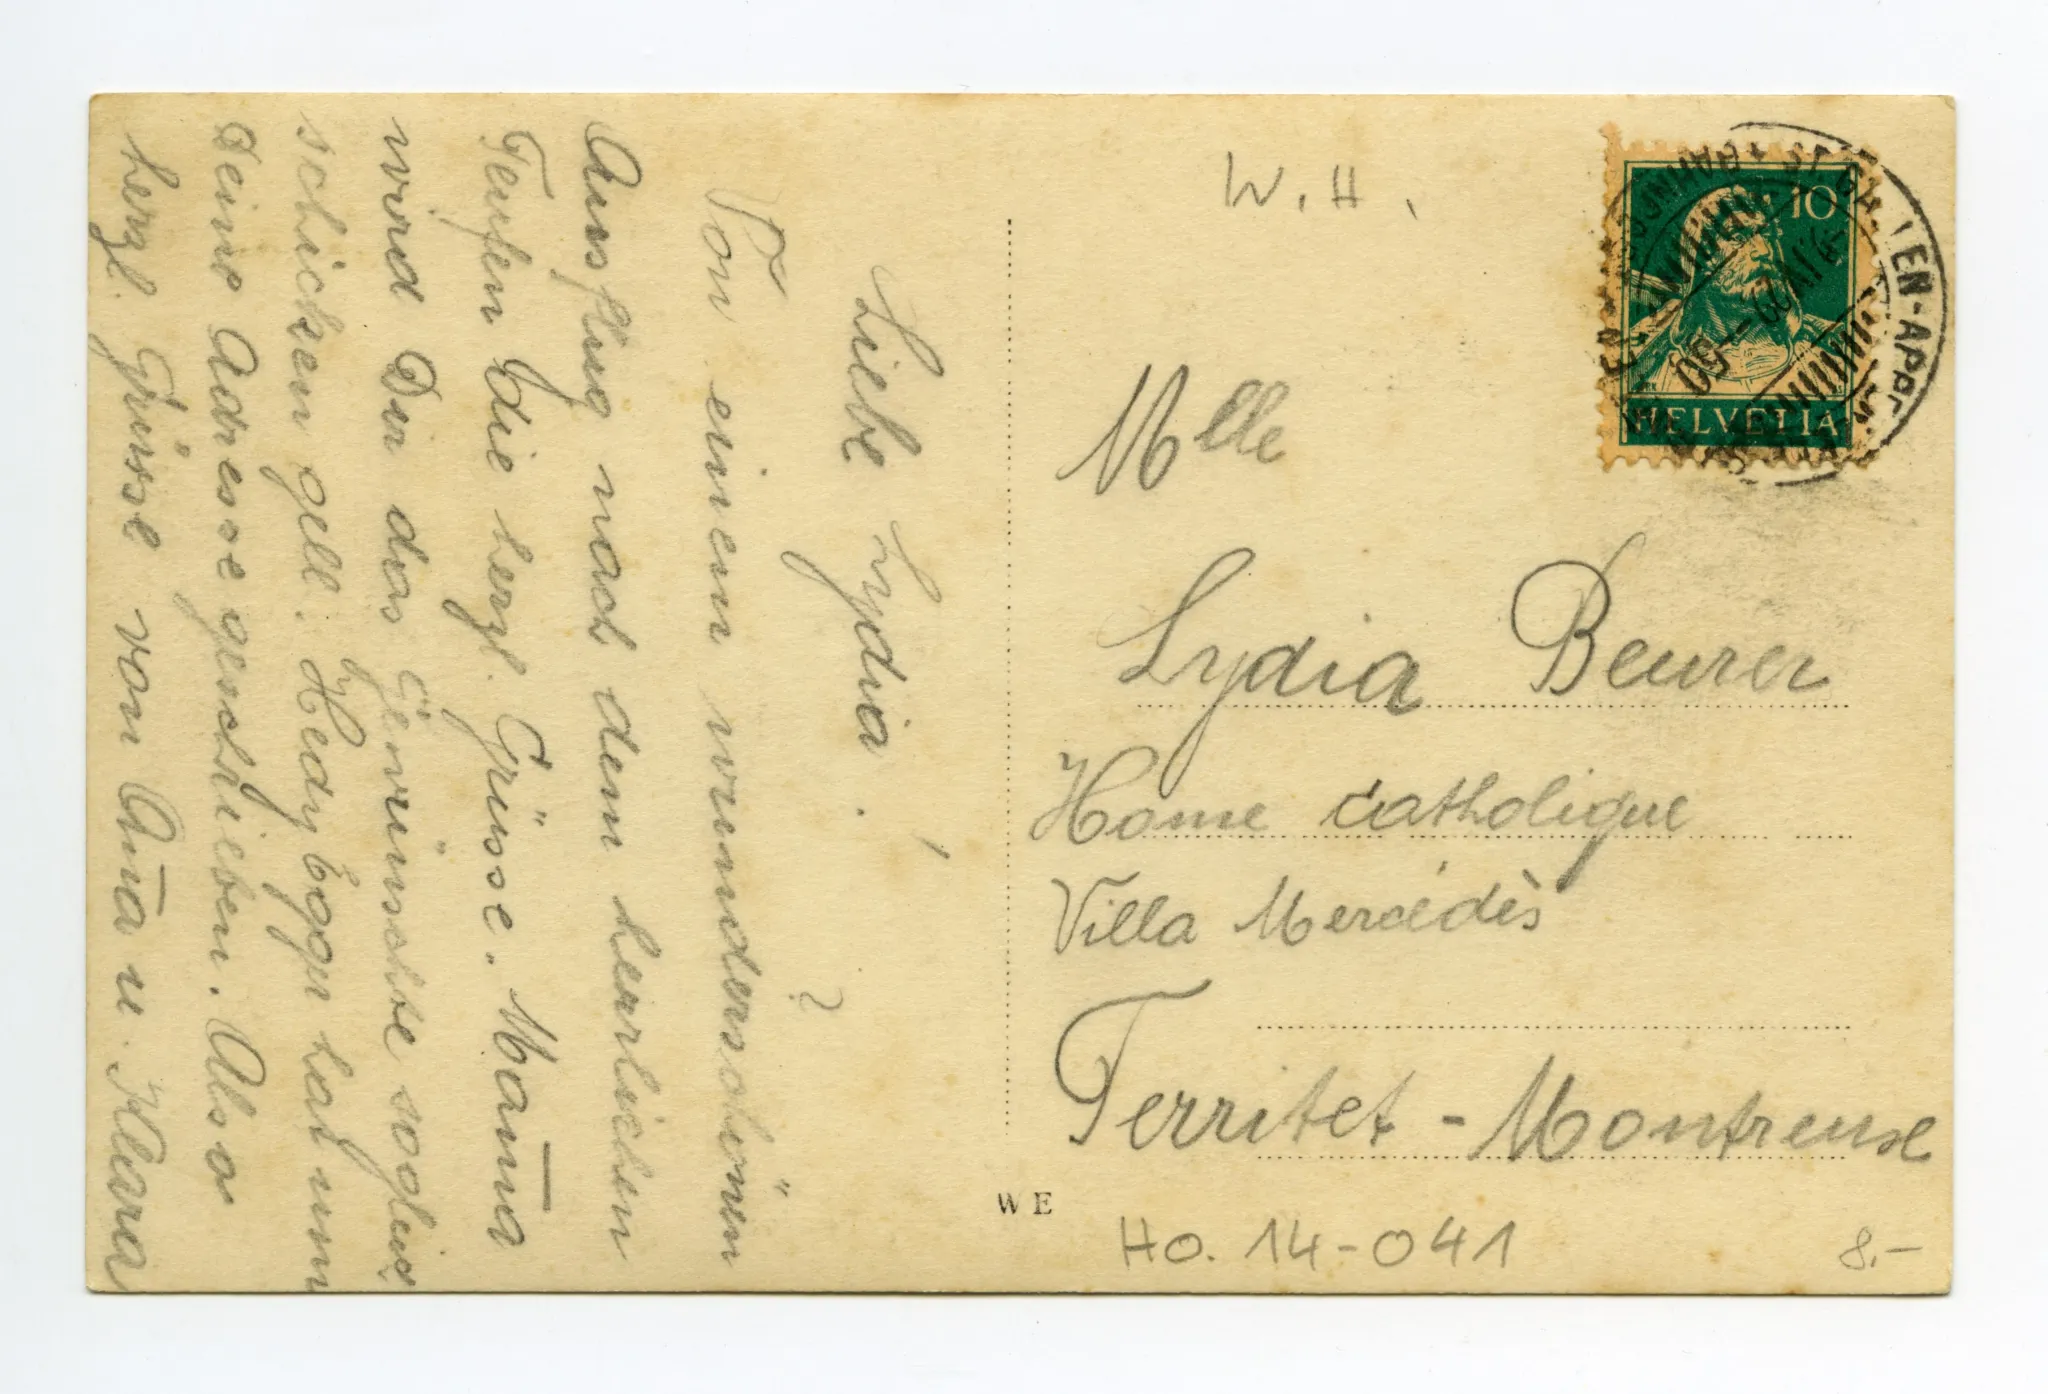 Liebe Lydia.
Von einem wunderschönen
Ausflug nach dem herrlichen
Teufen die herzl. Grüsse. Mama
wird Dir das Gewünschte sogleich
schicken gell. Hedy Egger hat um
Deine Adresse geschrieben. Also
herzl. Grüsse von Ama u. Klara
W.H.
10
HELVETIA
Mlle
Lydia Beurer
Home catholique
Villa Mercédès
Territet - Montreuse
WE
HO. 14-041
8.-